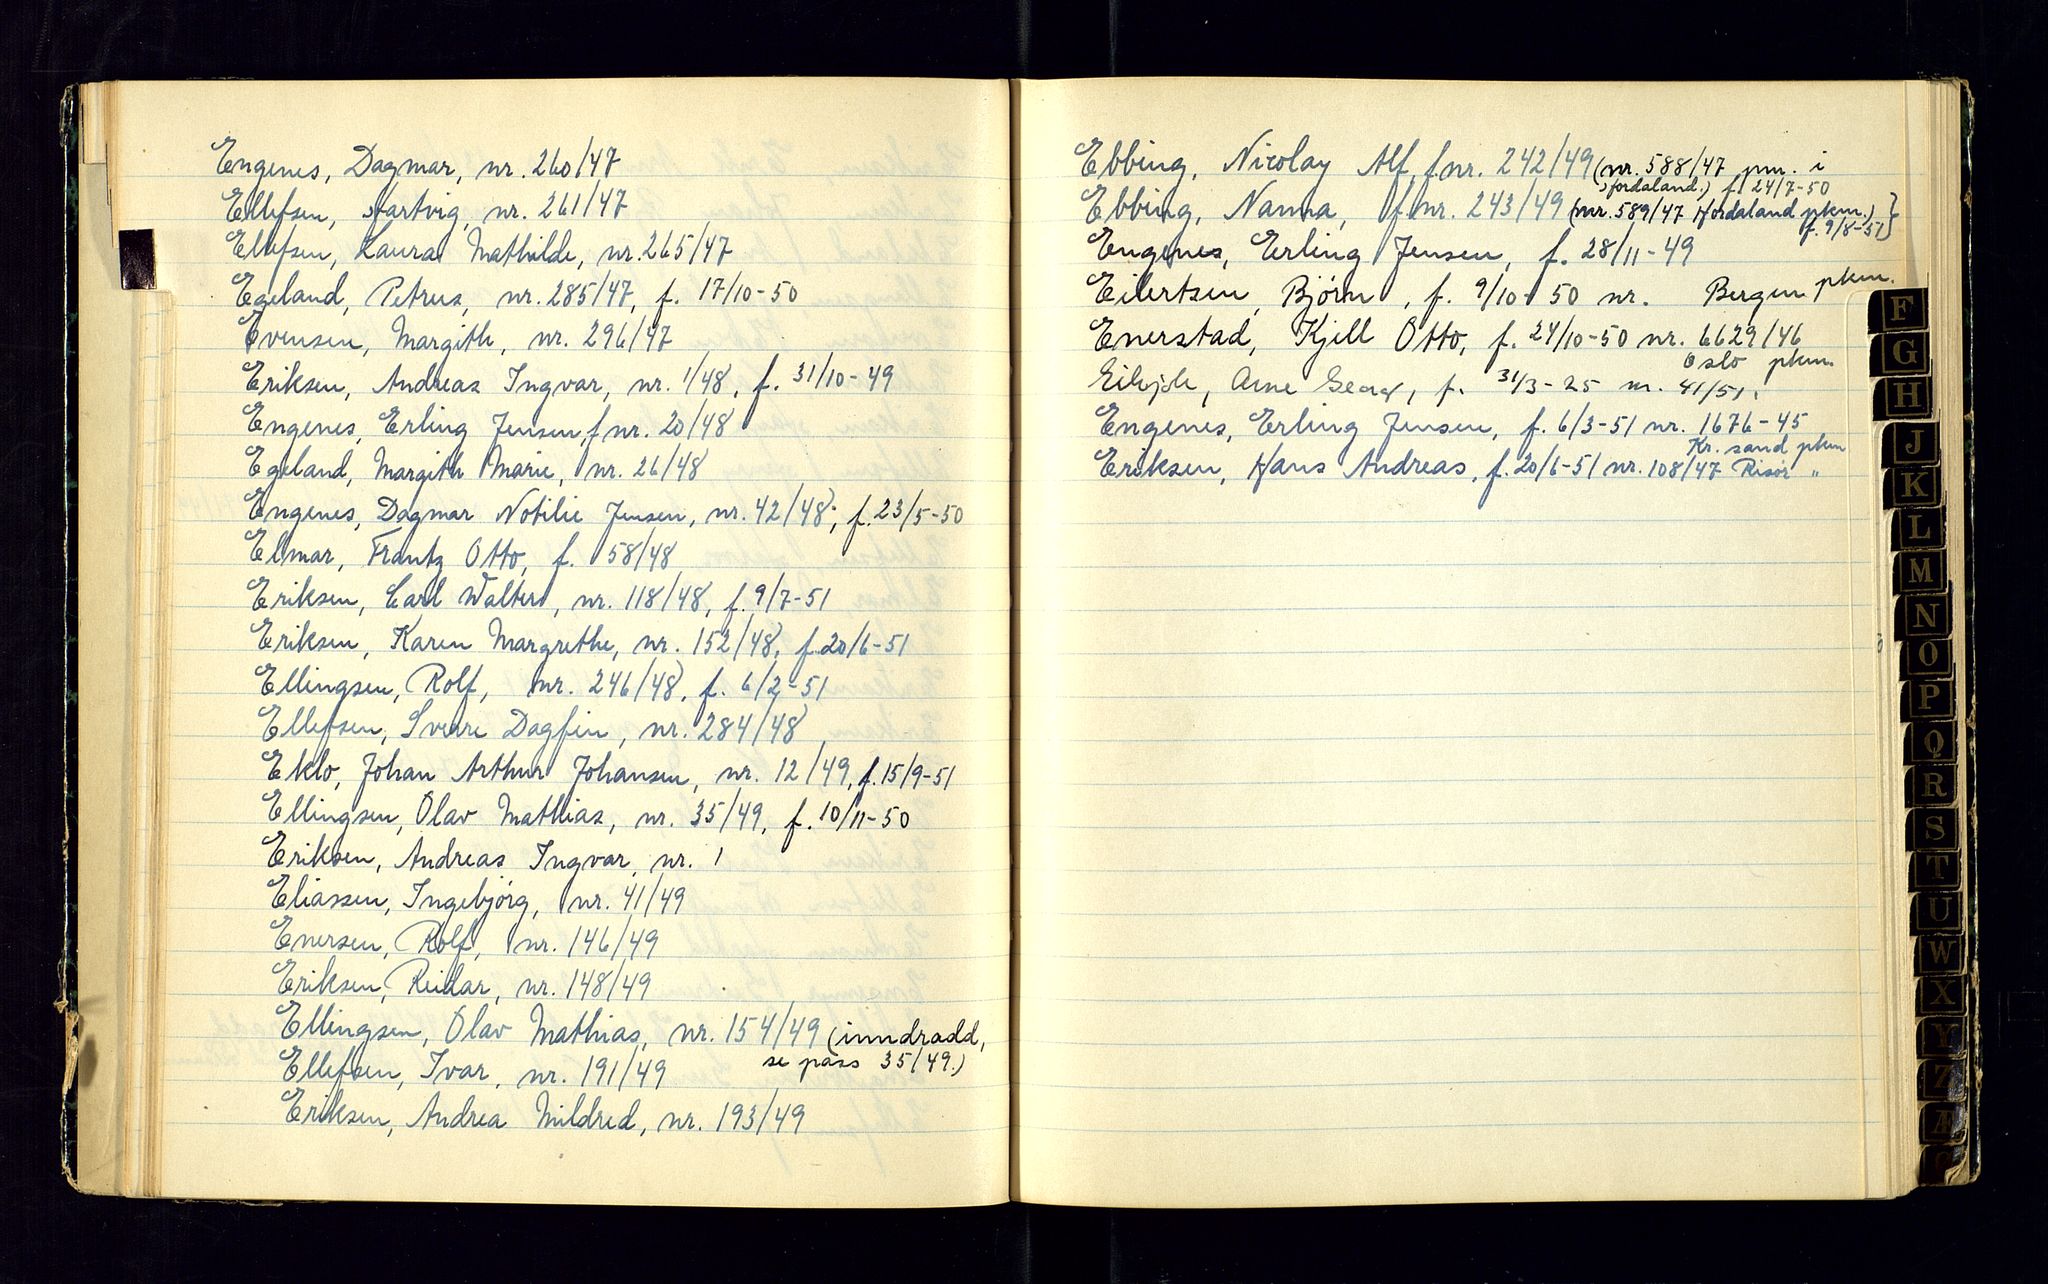 Engenes, Dagmar, nr. 260/47
Ellefsen, Hartvig, nr. 261/47
Ellefsen, Laura Mathilde, nr. 265/47
Egeland, Petrus, nr. 285/47, f. 17/10-50
Evensen, Margith, nr. 296/47
Eriksen, Andreas Ingvar, nr. 1/48, f. 31/10-49
Engenes, Erling Jensen, f nr. 20/48
Egeland, Margith Marie, nr. 26/48
Engenes, Dagmar Nobilie Jensen, nr. 42/48, f. 23/5-50
Elmar, Frantz Otto, f. 58/48
Eriksen, Carl Walter, nr. 118/48, f. 9/7-51
Eriksen, Karen Margrethe, nr. 152/48, f. 20/6-51
Ellingsen, Rolf, nr. 246/48, f. 6/2-51
Ellefsen, Sverre Dagfin, nr. 284/48
Eklo, Johan Arthur Johansen, nr. 12/49, f. 15/9-51
Ellingsen, Olav Mathias, nr. 35/49, f. 10/11-50
Eriksen, Andreas Ingvar, nr. 1
Eliassen, Ingebjørg, nr. 41/49
Enersen, Rolf, nr. 146/49
Eriksen, Reidar, nr. 148/49
Ellingsen, Olav Mathias, nr. 154/49 (inndradd,
se pass 35/49.)
Ellefsen, Ivar, nr. 191/49
Eriksen, Andrea Mildred, nr. 193/49
Ebbing, Nicolay Alf, f nr. 242/49 (nr. 588/47 pm. i
Hordaland.) f. 24/7-50
Ebbing, Nanna, f. nr. 243/49 (nr. 589/47 Hordaland pkm.)
f. 9/8-51
Engenes, Erling Jensen, f. 28/11-49
Eilertsen, Bjørn, f. 9/10-50 nr. Bergen pkm.
Enerstad, Kjell Otto, f. 24/10-50 nr. 6629/46
Oslo pkm.
Arne Georg, f. 31/3-25 nr. 41/51.
Engenes, Erling Jensen, f. 6/3-51 nr. 1676-45
Kr. sand pkm
Eriksen, Hans Andreas, f. 20/6-51 nr. 108/47 Risør "
F
G
H
J
K
L
M
N
O
P
Q
R
S
T
U
W
X
Y
Z
Æ